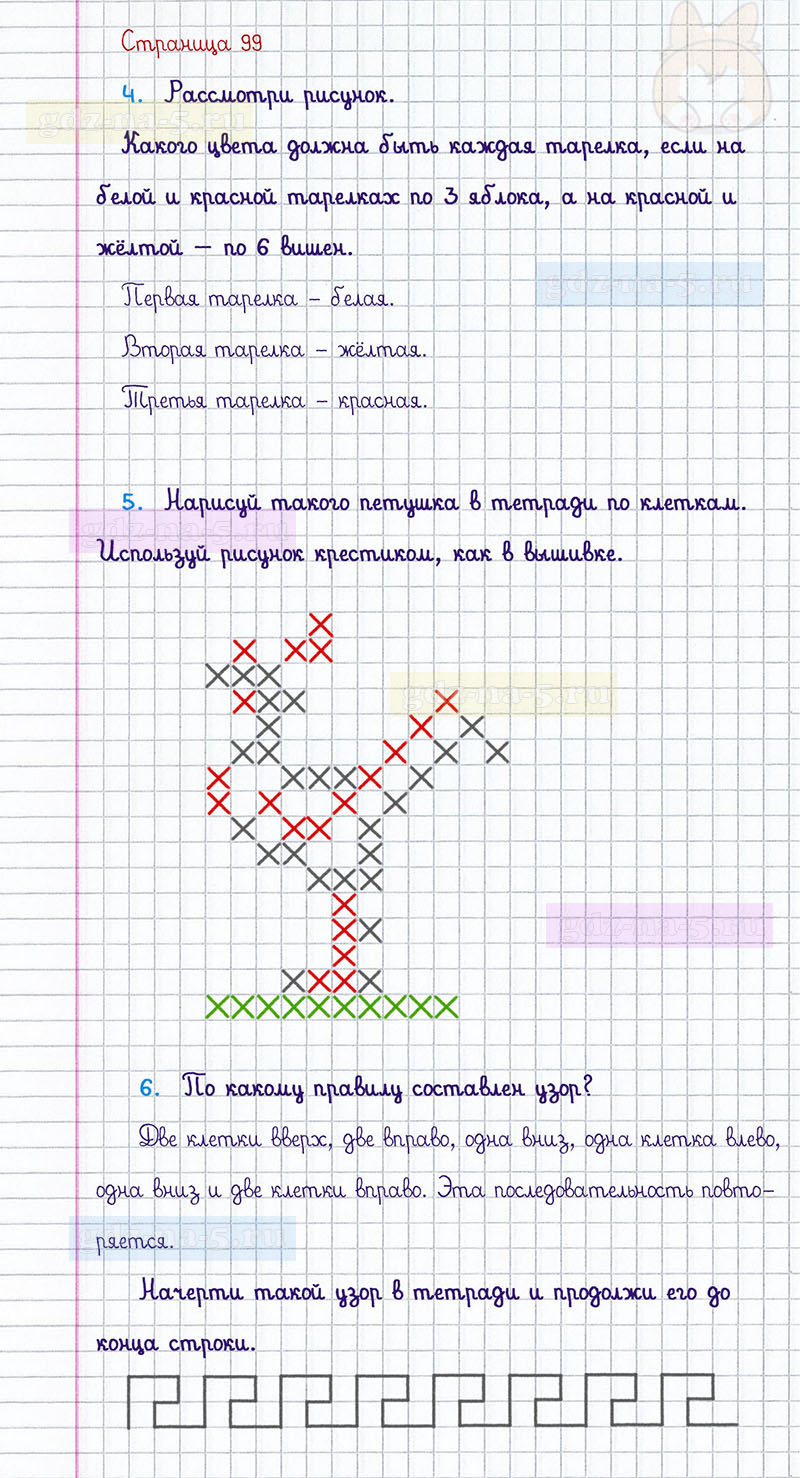 Страница 99
4. Рассмотри рисунок.
gdz-na-5.ru
Какого цвета должна быть каждая тарелка, если на
белой и красной тарелках по 3 яблока, а на красной и
жёлтой — по 6 вишен.
gdz-na-5.ru
Первая тарелка – белая.
Вторая тарелка – жёлтая.
Третья тарелка – красная.
5. Нарисуй такого петушка в тетради по клеткам.
gdz-na-5.ru
Используй рисунок крестиком, как в вышивке.
gdz-na-5.ru
gdz-na-5.ru
6. По какому правилу составлен узор?
Две клетки вверх, две вправо, одна вниз, одна клетка влево,
одна вниз и две клетки вправо. Эта последовательность повто-
gdz-na-5.ru
ряется.
Начерти такой узор в тетради и продолжи его до
конца строки.